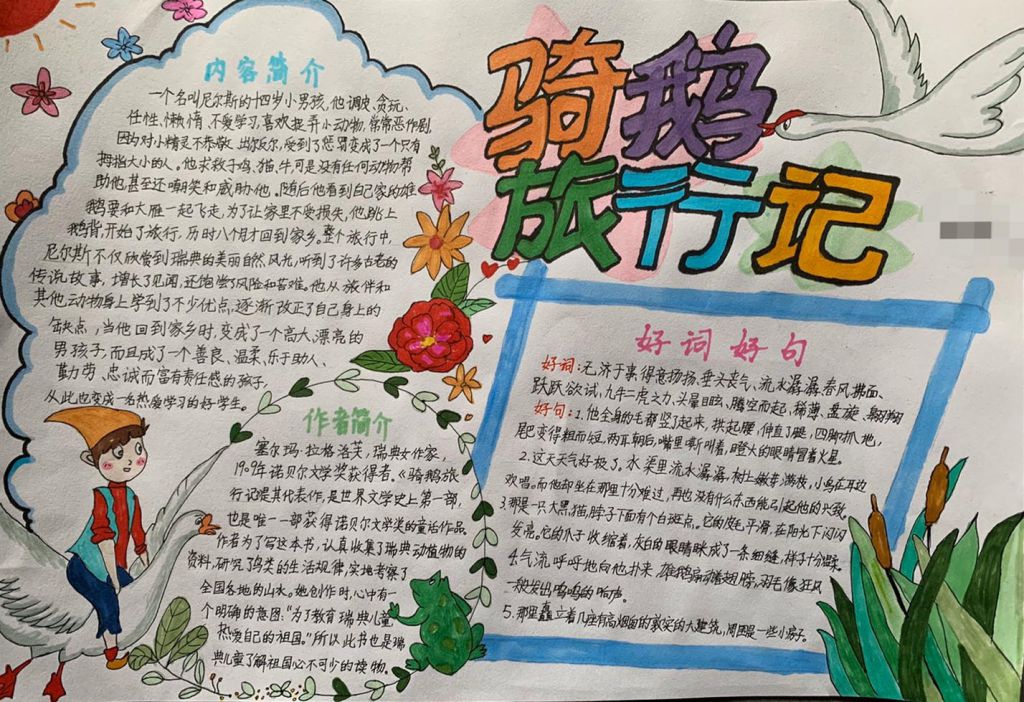 骑鹅
旅行记
内容简介
一个名叫尼尔斯的十四岁小男孩,他调皮、贪玩、
任性、懒惰、不爱学习,喜欢捉弄小动物,常常恶作剧,
因为对小精灵不恭敬、出尔反尔,受到了惩罚变成了一个只有
拇指大小的人。他求救于鸡、猫、牛可是没有任何动物帮
助他,甚至还嘲笑和威胁他。随后他看到自己家的雄
鹅要和大雁一起飞走,为了让家里不受损失,他跳上
鹅背开始了旅行,历时八个月才回到家乡。整个旅行中,
尼尔斯不仅欣赏到瑞典的美丽自然风光,听到了许多古老的
传说故事,增长了见闻,还饱尝了风险和苦难。他从旅伴和
其他动物身上学到了不少优点,逐渐改正了自己身上的
缺点,当他回到家乡时,变成了一个高大、漂亮的
男孩子,而且成了一个善良、温柔、乐于助人、
勤劳、忠诚而富有责任感的孩子,
从此也变成一名热爱学习的好学生。
作者简介
塞尔玛·拉格洛芙,瑞典女作家,
1909年诺贝尔文学奖获得者。《骑鹅旅
行记是其代表作,是世界文学史上第一部,
也是唯一一部获得诺贝尔文学奖的童话作品,
作者为了写这本书,认真收集了瑞典动植物的
资料,研究了鸟类的生活规律,实地考察了
全国各地的山水。她创作时,心中有一
个明确的意图:“为了教育瑞典儿童
热爱自己的祖国。”所以此书也是瑞
典儿童了解祖国必不可少的读物。
好词好句
好词:无济于事、得意扬扬、垂头丧气、流水潺潺、春风拂面、
跃跃欲试,九牛二虎之力、头晕目眩、腾空而起,稀薄、盘旋、翱翔
好句:1.他全身的毛都竖了起来,拱起腰,伸直了腿,四脚抓地,
尾巴变得粗而短,两耳朝后,嘴里嘶叫着,瞪大的眼睛冒着火星。
2.这天天气好极了,水渠里流水潺潺,树上嫩芽满枝,小鸟在耳边
欢唱。而他却坐在那里十分难过,再也没有什么东西能引起他的兴致
3.那是一只大黑猫,脖子下面有个白斑点。它的皮毛平滑,在阳光下闪闪
发亮。它的爪子收缩着,灰白的眼睛眯成了一条细缝,样子十分温柔
4.气流呼呼地向他扑来,雄鹅扇动着翅膀,羽毛像狂风
一般发出呜呜的响声。
5.那里矗立着几座有高烟囱的敦实的大建筑,周围是一些小房子。